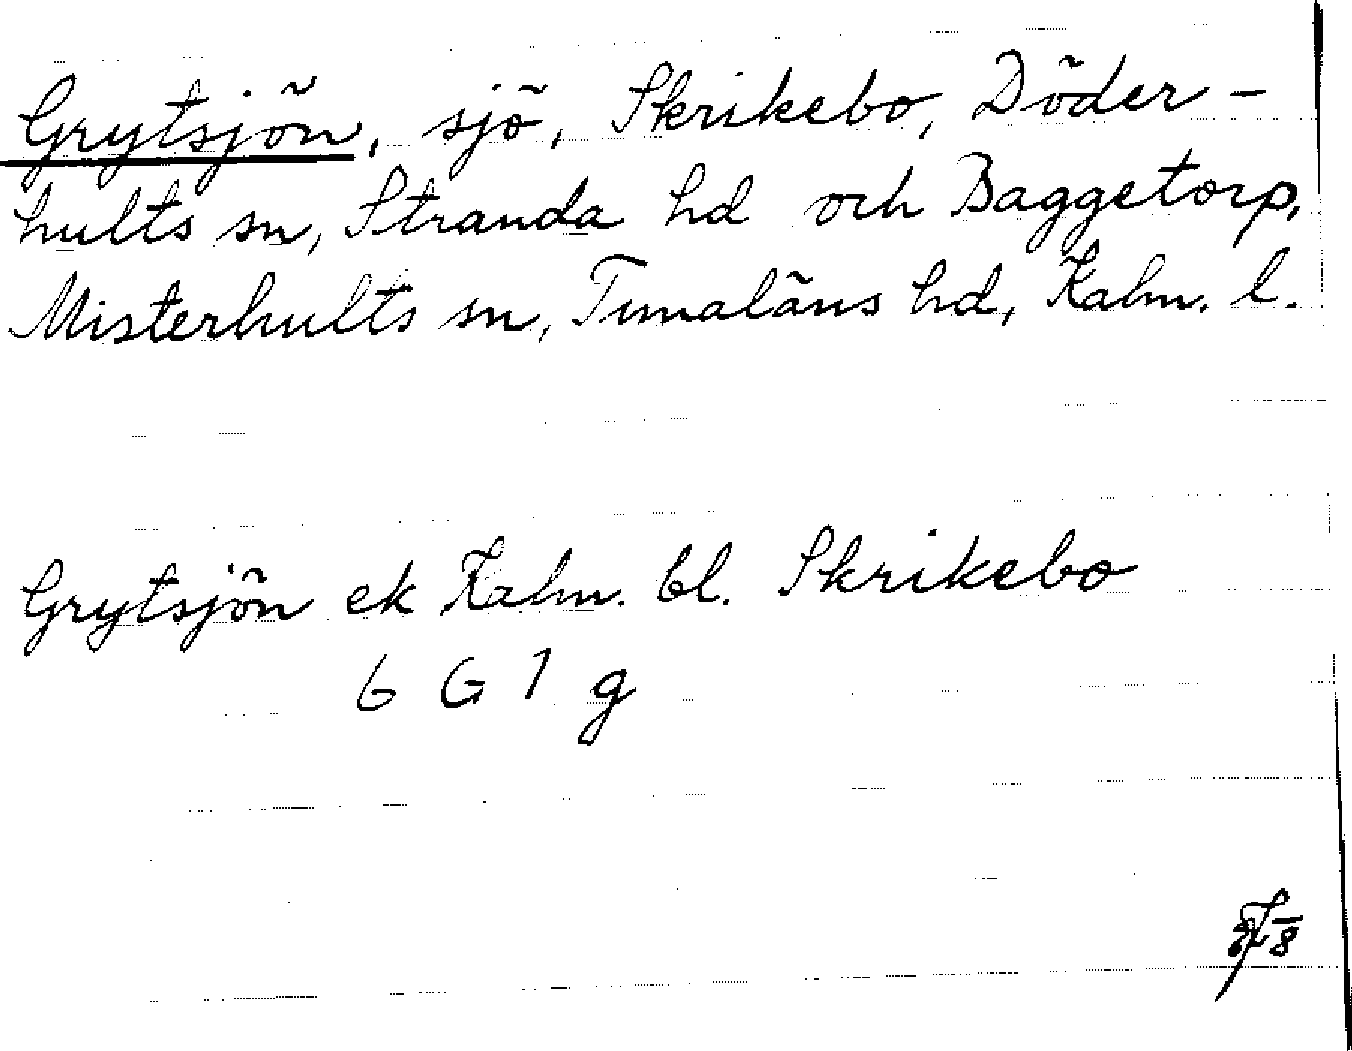 Grytsjön, sjö, Skrikebo, Döder-
hults sn, Stranda hd och Baggetorp,
Misterhults sn, Tunaläns hd, Kalm. l.
Grytsjön ek Kalm. bl. Skrikebo
6 G 1 g